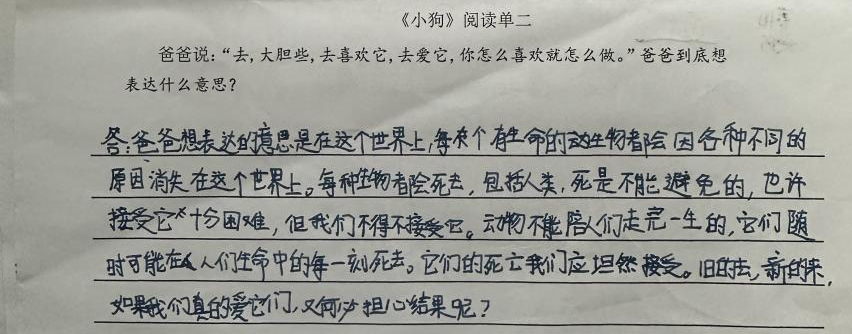 《小狗》阅读单二
爸爸说：“去，大胆些，去喜欢它，去爱它，你怎么喜欢就怎么做。”爸爸到底想
表达什么意思？
答：爸爸想表达的意思是在这个世界上，每个有生命的动生物都会因各种不同的
原因消失在这个世界上。每种生物都会死去，包括人类，死是不能避免的，也许
接受它十分困难，但我们不得不接受它。动物不能陪人们走完一生的，它们随
时可能在人们生命中的每一刻死去。它们的死亡我们应坦然接受。旧的去，新的来，
如果我们真的爱它们，又何必担心结果呢？